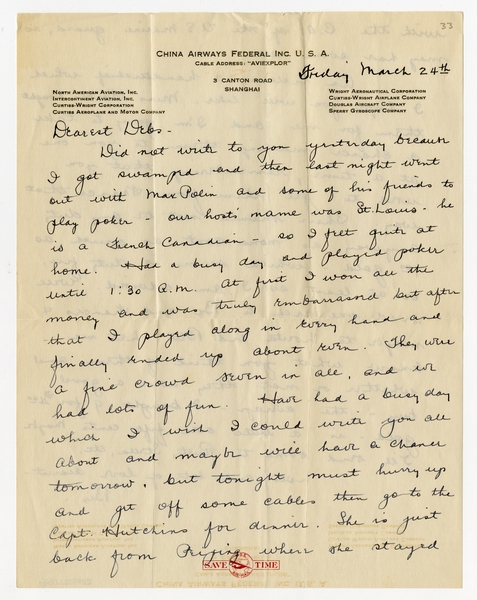 33
CHINA AIRWAYS FEDERAL INC. U. S. A.
CABLE ADDRESS: "AVIEXPLOR"
3 CANTON ROAD
SHANGHAI
Friday March 24th
NORTH AMERICAN AVIATION, INC.
INTERCONTINENT AVIATION, INC.
CURTISS-WRIGHT CORPORATION
CURTISS AEROPLANE AND MOTOR COMPANY
WRIGHT AERONAUTICAL CORPORATION
CURTISS-WRIGHT AIRPLANE COMPANY
DOUGLAS AIRCRAFT COMPANY
SPERRY GYROSCOPE COMPANY
Dearest Debs-
Did not write to you yesterday because
I got swamped and then last night went
out with Max Polin and some of his friends to
play poker - our hosts name was St. Louis - he
is a French Canadian - so I felt quite at
home. Had a busy day and played poker
until 1:30 A.M. At first I won all the
money and was truly embarrassed but after
that I played along in every hand and
finally ended up about even. They were
a fine crowd seven in all, and we
had lots of fun. Have had a busy day
which I wish I could write you all
about and maybe will have a chance
tomorrow, but tonight must hurry up
and get off some cables then go to the
Capt. Hutchins for dinner. She is just
back from Peiping where she stayed
SAVE TIME